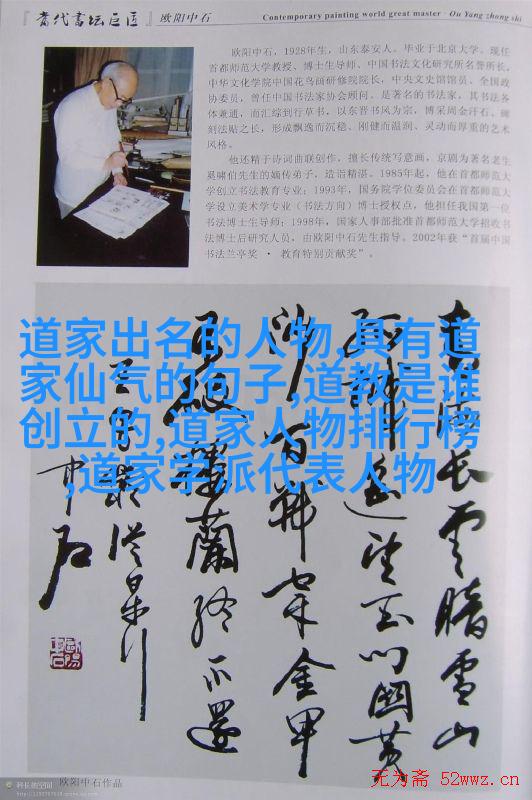 『当代书坛巨匠』 欧阳中石
Contemporary painting world great master · Ou Yang zhong shi
欧阳中石，1928年生，山东泰安人。毕业于北京大学。现任
首都师范大学教授、博士生导师、中国书法文化研究所名誉所长，
中华文化学院中国花鸟画研修院院长，中央文史馆馆员、全国政
协委员，曾任中国书法家协会顾问。是著名的书法家，其书法各
体兼通，而汇综到行草书，以东晋书风为宗，博采周金汗石、碑
刻法贴之长，形成飘逸而沉稳、刚健而温润、灵动而厚重的艺术
风格。
他还精于诗词曲联创作，擅长传统写意画，京剧为著名老生
奚啸伯先生的嫡传弟子，造诣精湛。1985年起，他在首都师范大
学创立书法教育专业；1993年，国务院学位委员会在首都师范大
学设立美术学专业（书法方向）博士授权点，他担任我国第一位
书法博士生导师；1998年，国家人事部批准首都师范大学招收书
法博士后研究人员，由欧阳中石先生指导。2002年获“首届中国
书法兰亭奖 · 教育特别贡献奖”。
道家出名的人物,具有道
家仙气的句子,道教是谁
创立的,道家人物排行榜
,道家学派代表人物
青海长云暗雪山
孤城遥望玉门关黄
沙百战穿金甲
不破楼蘭终不還
王昌龄从军行
中石
欧阳中石作品
科长的空间
无为斋 52wwz.cn